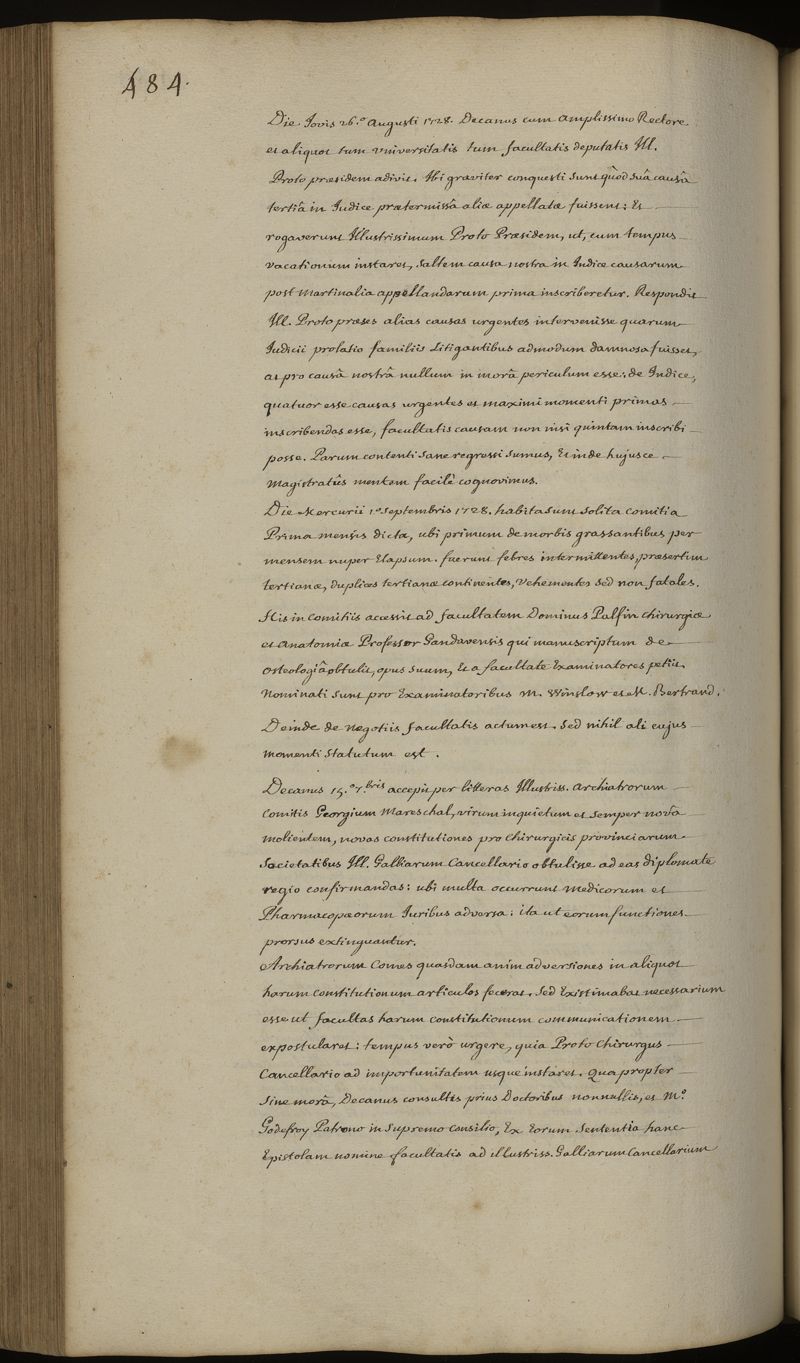 484.
Die Jovis 26.º Augusti 1728. Decanus cum Amplissimo Rectore
et aliquot tum Universitatis tum facultatis deputatis Ill.
Proto præsidem adivit. Ibi graviter conquesti sunt quòd suâ causâ
tertiâ in Indice prætermissâ aliæ appellatæ fuissent: Et
rogaverunt Illustrissimum Proto Præsidem, ut, cum tempus
vacationum instaret, saltem causa nostra in Indice causarum
post Martinalia appellandarum prima inscriberetur. Respondit
Ill. Proto præses alias causas urgentes intervenisse quarum
Judicii prolatio familiis Litigantibus admodum damnosa fuisset,
at pro causâ nostrâ nullum in morâ periculum esse: de Indice,
quatuor esse causas urgentes et maximi momenti primas
inscribendas esse, facultatis causam non nisi quintam inscribi
posse. Parum contenti sane regressi sumus, Et inde hujusce
Magistratûs mentem facilè cognovimus.
Die Mercurii 1º Septembris 1728. habita sunt solita comitia
Prima mensis dicta, ubi primum de morbis grassantibus per
mensem nuper Elapsum. fuerunt febres intermittentes, præsertim
tertianæ, duplices tertianæ continentes, vehementes sed non fatales.
His in Comitiis accessit ad facultatem Dominus Palfin Chirurgiæ
et Anatomiæ Professor Gandavensis qui manuscriptum de
osteologiâ obtulit, opus suum, Et a facultate Examinatores petiit.
Nominati sunt pro Examinatoribus M. Winslow et M. Bertrand.
Deinde de negotiis facultatis actum est. Sed nihil ali cujus
momenti statutum est.
Decanus 15.º 7bris accepit per litteras Illustriss. Archiatrorum
Comitis Georgium Mareschal, virum inquietum et semper nova
molientem, novas constitutiones pro Chirurgicis provinciarum
Societatibus Ill. Galliarum Cancellario obtulisse ad eas diplomate
regio confirmandas: ubi multa occurrunt medicorum et
Pharmacopæorum Juribus adversa: ita ut eorum functiones
prorsus extinguantur.
Archiatrorum Comes quasdam animadversiones in aliquot
harum constitutionum articulos fecerat. Sed Existimabat necessarium
esse ut facultas harum constitutionum communicationem
expostularet: tempus verò urgere, quia Proto Chirurgus
Cancellario ad importunitatem usque instaret. Quapropter
Sine morâ, Decanus consultis prius Doctoribus nonnullis, et Mº
Godefroy Patrono in Supremo Consilio, Ex Eorum Sententia hanc
Epistolam nomine facultatis ad illustriss. Galliarum Cancellarium